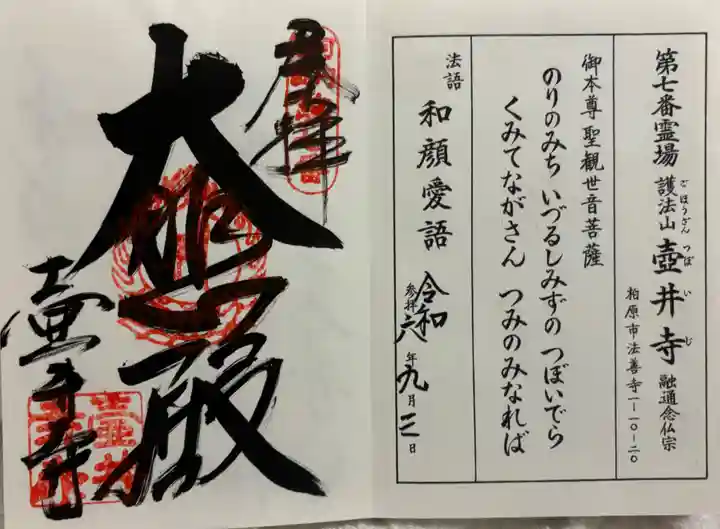 第七番霊場 護法山 壺井寺 融通念仏宗
ごほうざん つぼいじ
柏原市法善寺一-一〇-二〇
御本尊 聖観世音菩薩
のりのみち いづるしみずの つぼいでら
くみてながさん つみのみなれば
法語 和顔愛語
参拝 令和六年九月三日
奉拝
大悲殿
壺井寺